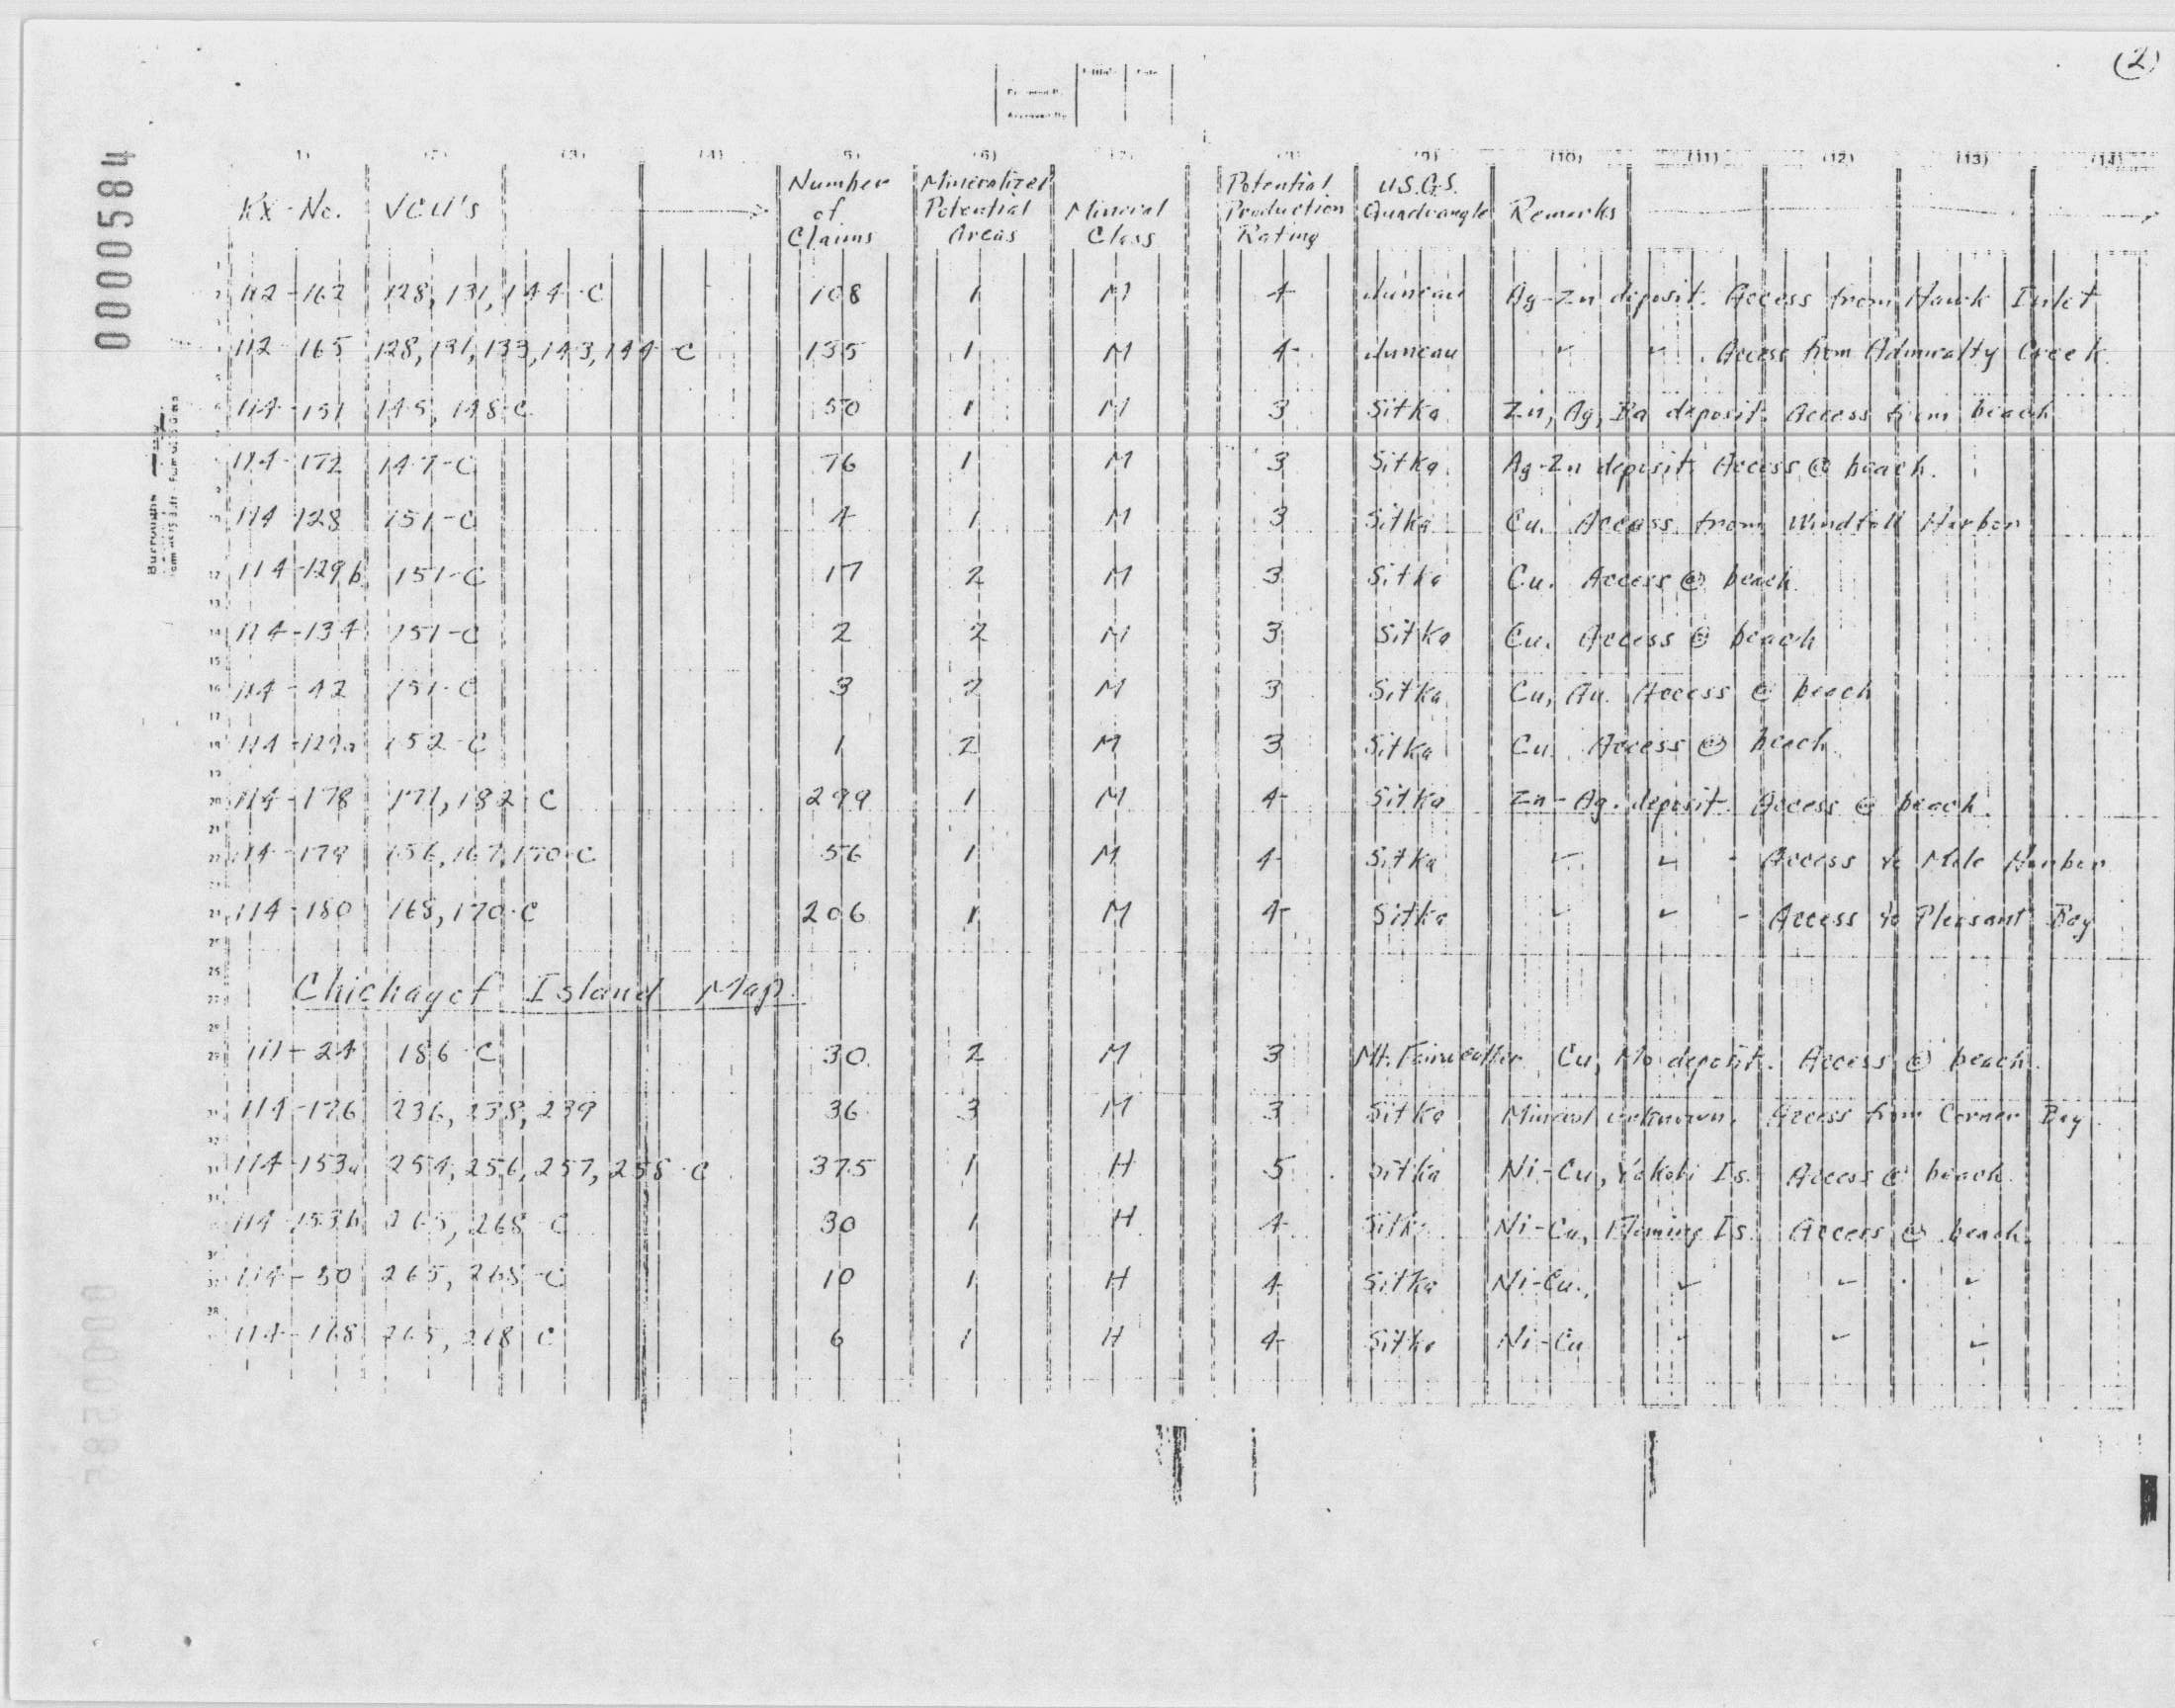 (2)
0000584
(1) (2) (3) (4) (5) (6) (7) (8) (9) (10) (11) (12) (13) (14)
Kx-No. VCU's Number of Claims Mineralized Potential Areas Mineral Class Potential Production Rating U.S.G.S. Quadrangle Remarks
112-162 128, 131, 144-C 108 1 M 4 Juneau Ag-Zn deposit. Access from Hawk Inlet
112-165 128, 131, 133, 143, 144-C 135 1 M 4 Juneau " " . Access from Admiralty Creek
114-151 145, 148-C 50 1 M 3 Sitka Zn, Ag, Ba deposit. Access from beach
114-172 147-C 76 1 M 3 Sitka Ag-Zn deposit. Access @ beach.
114-128 151-C 4 1 M 3 Sitka Cu. Access from Windfall Harbor
114-129b 151-C 17 2 M 3 Sitka Cu. Access @ beach.
114-134 151-C 2 2 M 3 Sitka Cu. Access @ beach
114-42 151-C 3 2 M 3 Sitka Cu, Au. Access @ beach
114-129a 152-C 1 2 M 3 Sitka Cu. Access @ beach.
114-178 171, 182-C 299 1 M 4 Sitka Zn-Ag. deposit. Access @ beach.
114-179 156, 167, 170-C 56 1 M 4 Sitka " " - Access to Mole Harbor
114-180 168, 170-C 206 1 M 4 Sitka " " - Access to Pleasant Bay
Chichagof Island Map.
111-24 186-C 30 2 M 3 Mt. Fairweather Cu, Mo deposit. Access @ beach.
114-176 236, 238, 239 36 3 M 3 Sitka Mineral unknown. Access from Corner Bay.
114-153a 254, 256, 257, 258-C 375 1 H 5 Sitka Ni-Cu, Yakobi Is. Access @ beach.
114-153b 265, 268-C 30 1 H 4 Sitka Ni-Cu, Fleming Is. Access @ beach.
114-50 265, 268-C 10 1 H 4 Sitka Ni-Cu., " " "
114-168 265, 268-C 6 1 H 4 Sitka Ni-Cu " " "
Burroughs